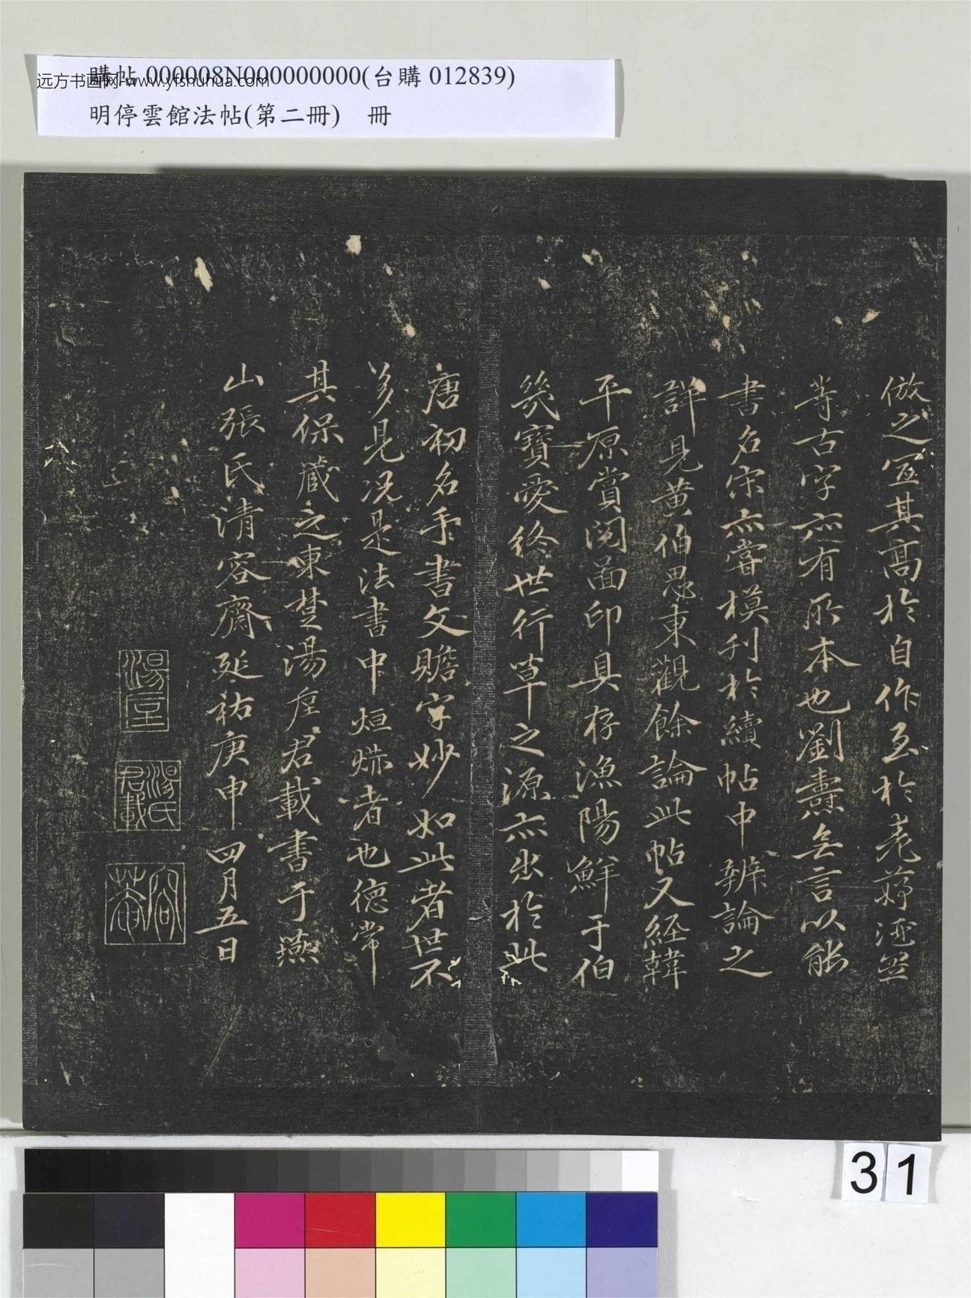 購帖 000008N000000000(台購 012839)
远方书画网 www.yfshuhua.com
明停雲館法帖(第二冊)　冊
倣之宜其高於自作至於老蘇涯
等古字亦有所本也劉燾無言以能
書名宋亦嘗模刊於續帖中辨論之
詳見黃伯思東觀餘論此帖又經韓
平原賞閱圖印具存漁陽鮮于伯
幾寶愛終世行草之源亦出於此
唐初名手書文贍字妙如此者世不
多見況是法書中烜赫者也德常
其保藏之東楚湯垕君載書于燕
山張氏清容齋延祐庚申四月五日
湯垕
湯氏君載
31